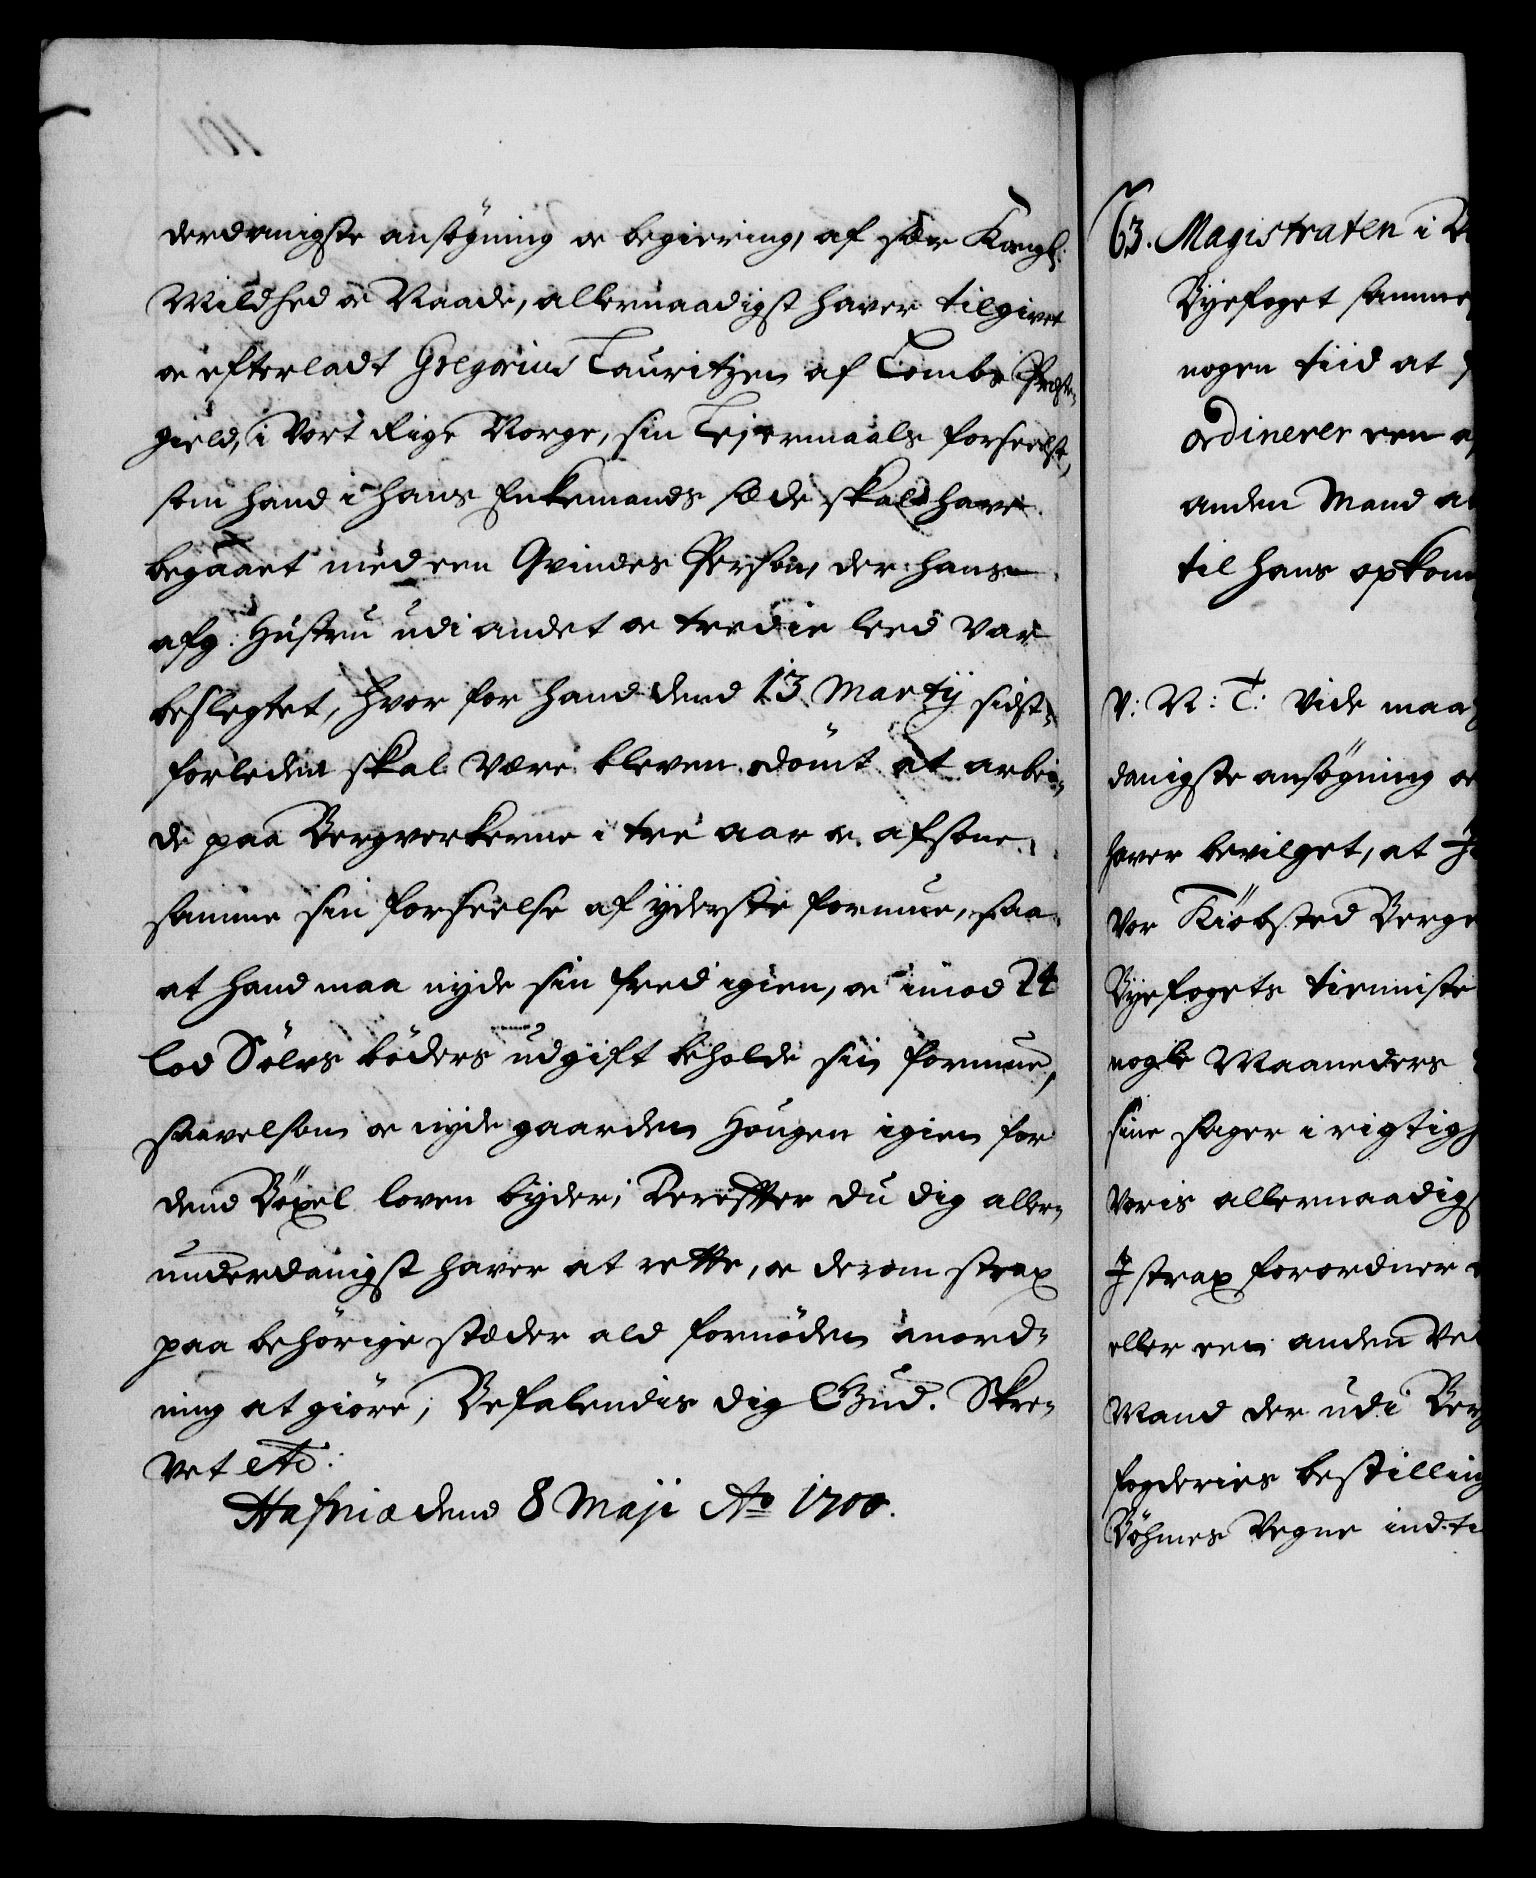 derdanigste ansøgning oc begiering, af sær Kongl:
Mildhed oc Naade, allernaadigst haver tilgivet
oc efterladt Gregorius Lauritzen af Tombe Præste-
gield, i Vort Rige Norge, sin Lejermaals forseelse,
som hand i hans Enkemands sæde skal have
begaaet med een Qvindes Person, der hans
afg: Hustru udi andet oc tredie leed var
beslegtet, hvor for hand dend 13 Martij sidst-
forleden skal være bleven dømt at arbei-
de paa Bergverkerne i tre aar oc afsone
samme sin forseelse af yderste formue, saa
at hand maa nyde sin fred igien, oc imod 24
lod Sølvs bøders udgift beholde sin formue,
saavelsom oc nyde gaarden Hougen igien for
dend Bøxel loven byder; Derefter du dig aller-
underdanigst haver at rette, oc derom strax
paa behørige stæder ald fornøden anord-
ning at giøre; Befalendis dig Gud. Skre-
vet etc:
Hafniæ dend 8 Maji Ao 1700.
63. Magistraten i
Byefoget samme
nogen tiid at
ordinerer een
anden Mand
til hans opkom
V: N: T: Vide maa
danigste ansøgning oc
haver bevilget, at
vor Kiøbsted Berge
Byefogets tienniste
nogle Maaneders
sine sager i rigtigh
Voris allernaadigs
I strax forordner
eller een anden
Mand der udi Berg
fogderies bestilling
Bøhmes Vegne ind-